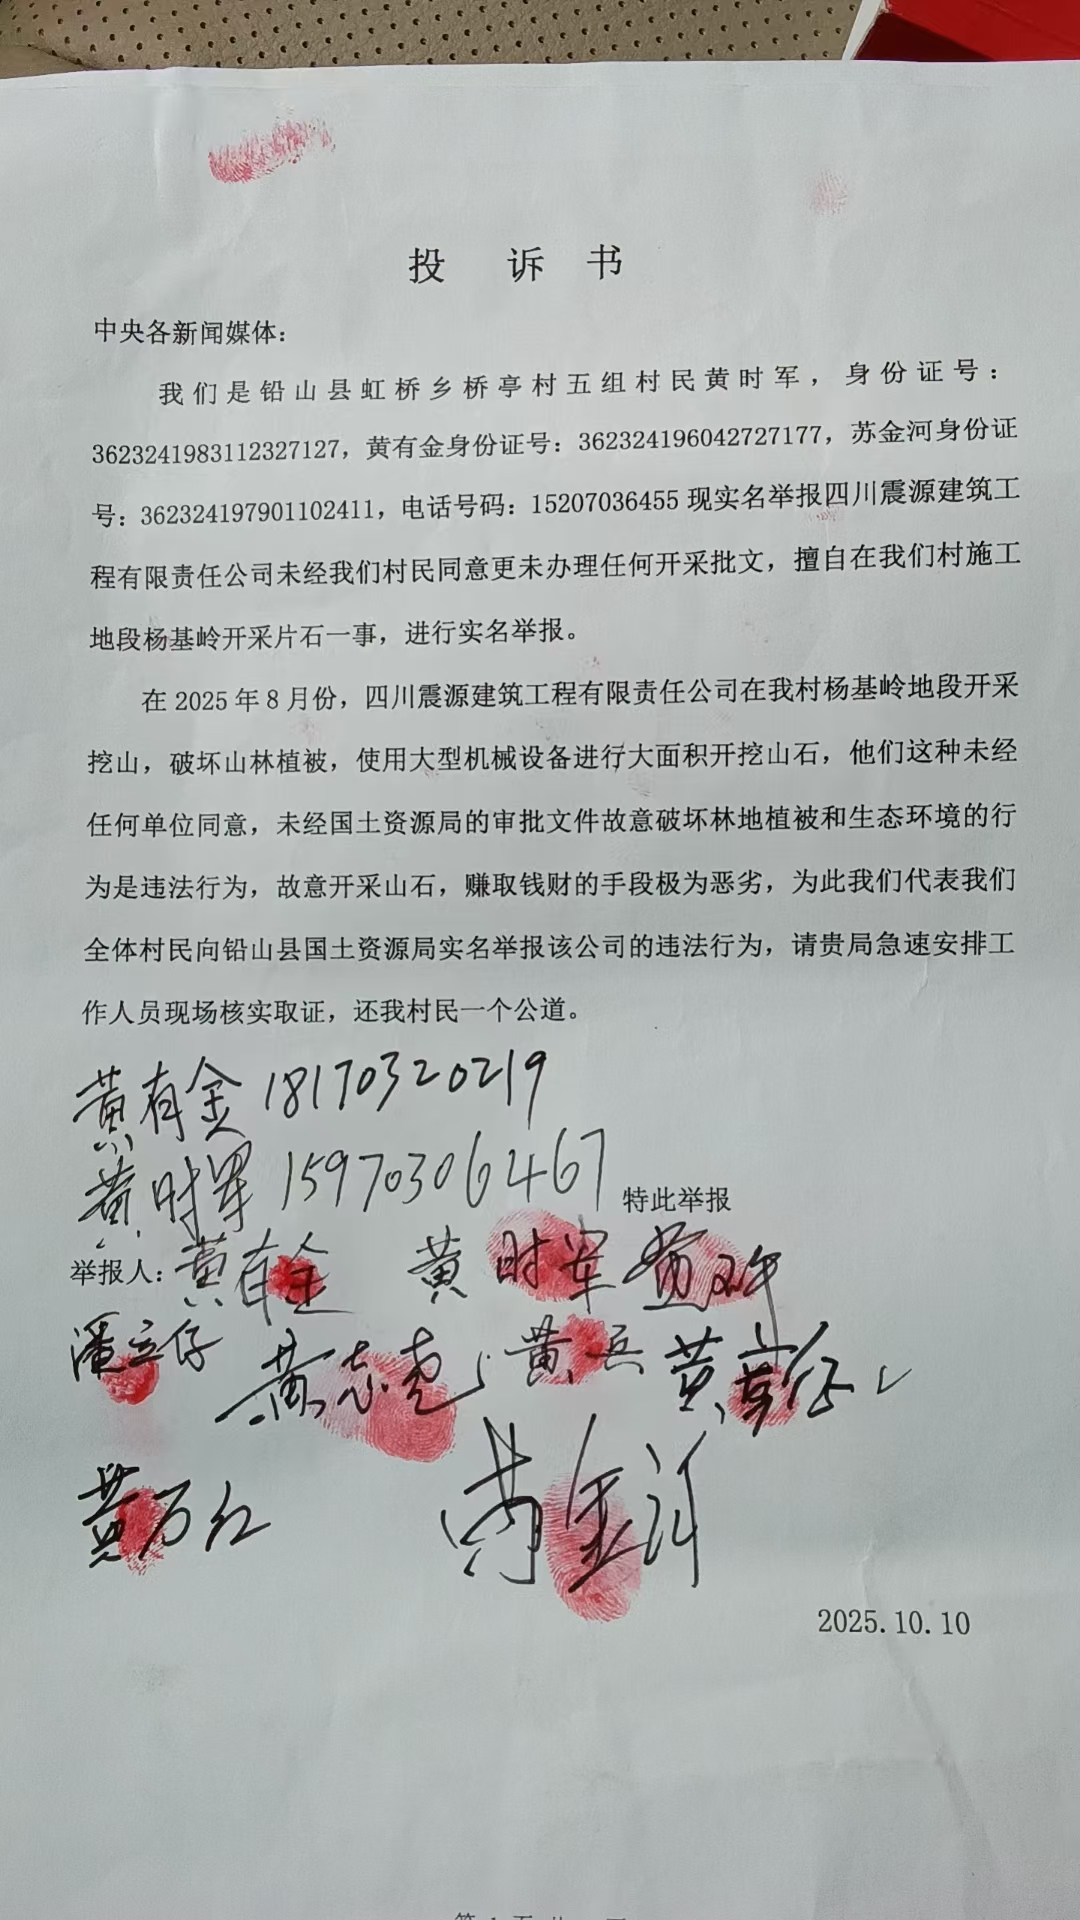 投 诉 书
中央各新闻媒体：
我们是铅山县虹桥乡桥亭村五组村民黄时军，身份证号：
3623241983112327127，黄有金身份证号：362324196042727177，苏金河身份证
号：362324197901102411，电话号码：15207036455 现实名举报四川震源建筑工
程有限责任公司未经我们村民同意更未办理任何开采批文，擅自在我们村施工
地段杨基岭开采片石一事，进行实名举报。
在 2025 年 8 月份，四川震源建筑工程有限责任公司在我村杨基岭地段开采
挖山，破坏山林植被，使用大型机械设备进行大面积开挖山石，他们这种未经
任何单位同意，未经国土资源局的审批文件故意破坏林地植被和生态环境的行
为是违法行为，故意开采山石，赚取钱财的手段极为恶劣，为此我们代表我们
全体村民向铅山县国土资源局实名举报该公司的违法行为，请贵局急速安排工
作人员现场核实取证，还我村民一个公道。
黄有金 18170320219
黄时军 15970306467
特此举报
举报人：黄有金 黄时军
潘立仔 黄志亮 黄兵
黄万红
2025.10.10